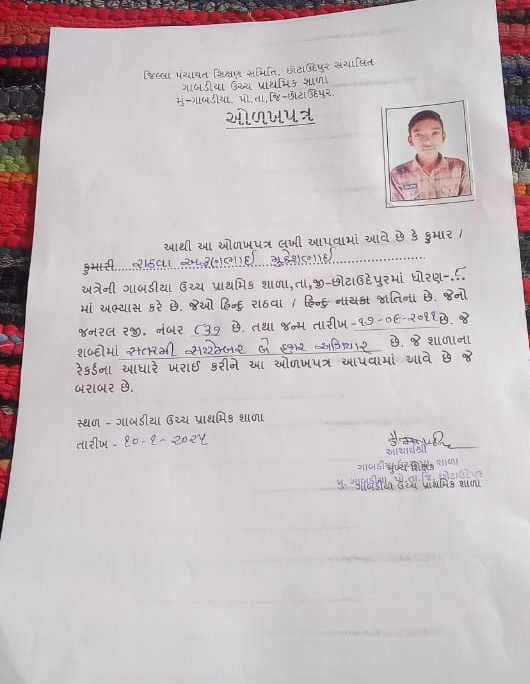 જિલ્લા પંચાયત શિક્ષણ સમિતિ, છોટાઉદેપુર સંચાલિત
ગાબડીયા ઉચ્ચ પ્રાથમિક શાળા
મુ-ગાબડીયા, પો.તા,જિ-છોટાઉદેપુર.
ઓળખપત્ર
આથી આ ઓળખપત્ર લખી આપવામાં આવે છે કે કુમાર /
કુમારી રાઠવા
અત્રેની ગાબડીયા ઉચ્ચ પ્રાથમિક શાળા,તા,જી-છોટાઉદેપુરમાં ધોરણ-
માં અભ્યાસ કરે છે. જેઓ હિન્દુ રાઠવા / હિન્દુ નાયકા જાતિના છે. જેનો
જનરલ રજી. નંબર ૮૩૭ છે. તથા જન્મ તારીખ -૧૭-૦૯-૨૦૧૧ છે. જે
શબ્દોમાં સત્તરમી સપ્ટેમ્બર બે હજાર અગિયાર છે. જે શાળાના
રેકર્ડના આધારે ખરાઈ કરીને આ ઓળખપત્ર આપવામાં આવે છે જે
બરાબર છે.
સ્થળ - ગાબડીયા ઉચ્ચ પ્રાથમિક શાળા
તારીખ - ૨૦-૧-૨૦૨૫
આચાર્યશ્રી
મુખ્ય શિક્ષક
ગાબડીયા ઉચ્ચ પ્રાથમિક શાળા